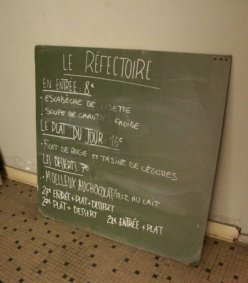 LE RÉFECTOIRE
EN ENTRÉE 8€
• ESCABÈCHE DE LISETTE
• SOUPE DE CAROTTES
LE PLAT DU JOUR 16€
• FILET DE ET TAJINE DE LÉGUMES
LES DESSERTS 7€
• MOELLEUX AU CHOCOLAT/RIZ AU LAIT
ENTRÉE + PLAT + DESSERT
PLAT + DESSERT ENTRÉE + PLAT